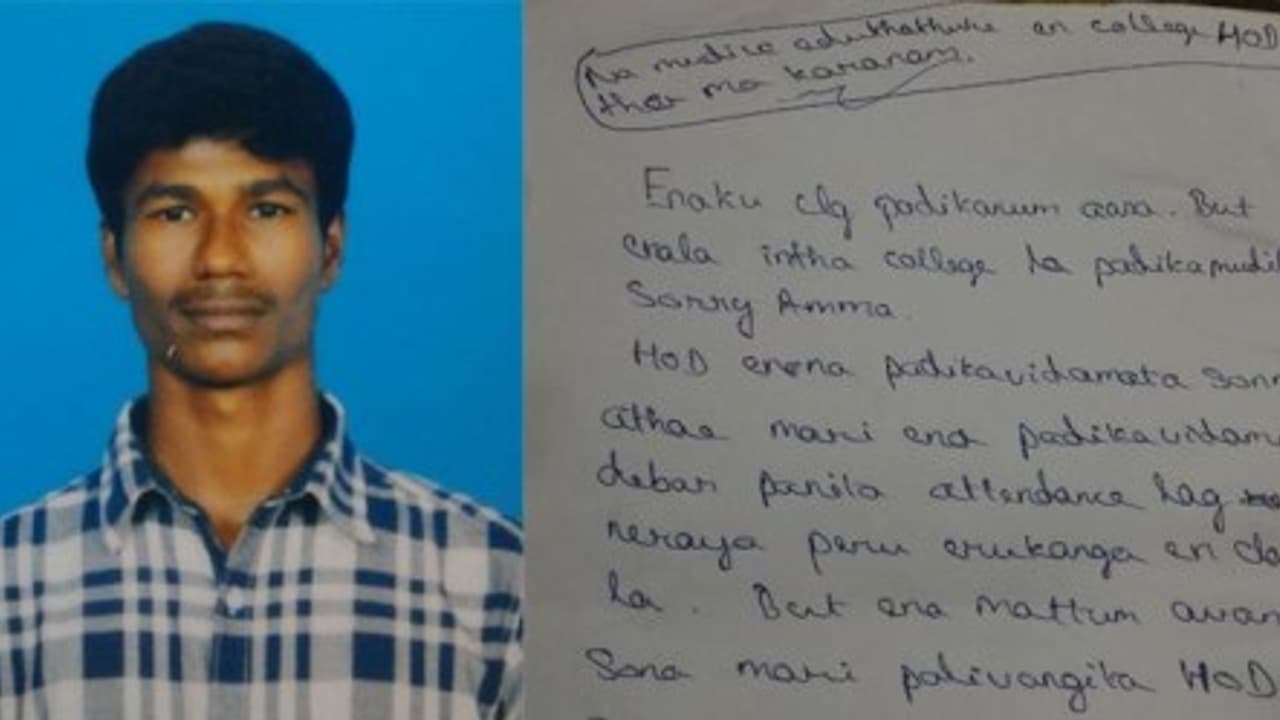 Na mudivu eduthathuke en college HOD
than ma karanam.
Enaku clg padikanum aasa. But
enala intha college la padikamudi
Sorry Amma.
HOD enena padikavidameta sonn
athae mari ena padikavidam
debar panita attendance lag
neraya peru erukanga en cla
la. But ena mattum avan
Sona mari palivangita HOD